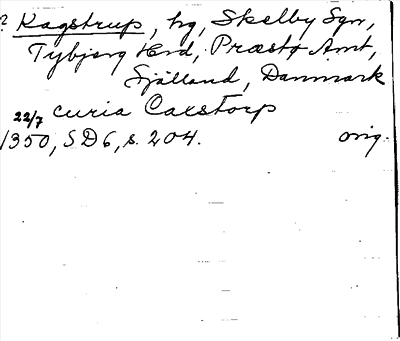 ? Kagstrup, hg, Skelby Sgn,
Tybjerg Hrd, Præstø Amt,
Själland, Danmark
22/7 curia Caxstorp
1350, SD6, s. 204. orig.